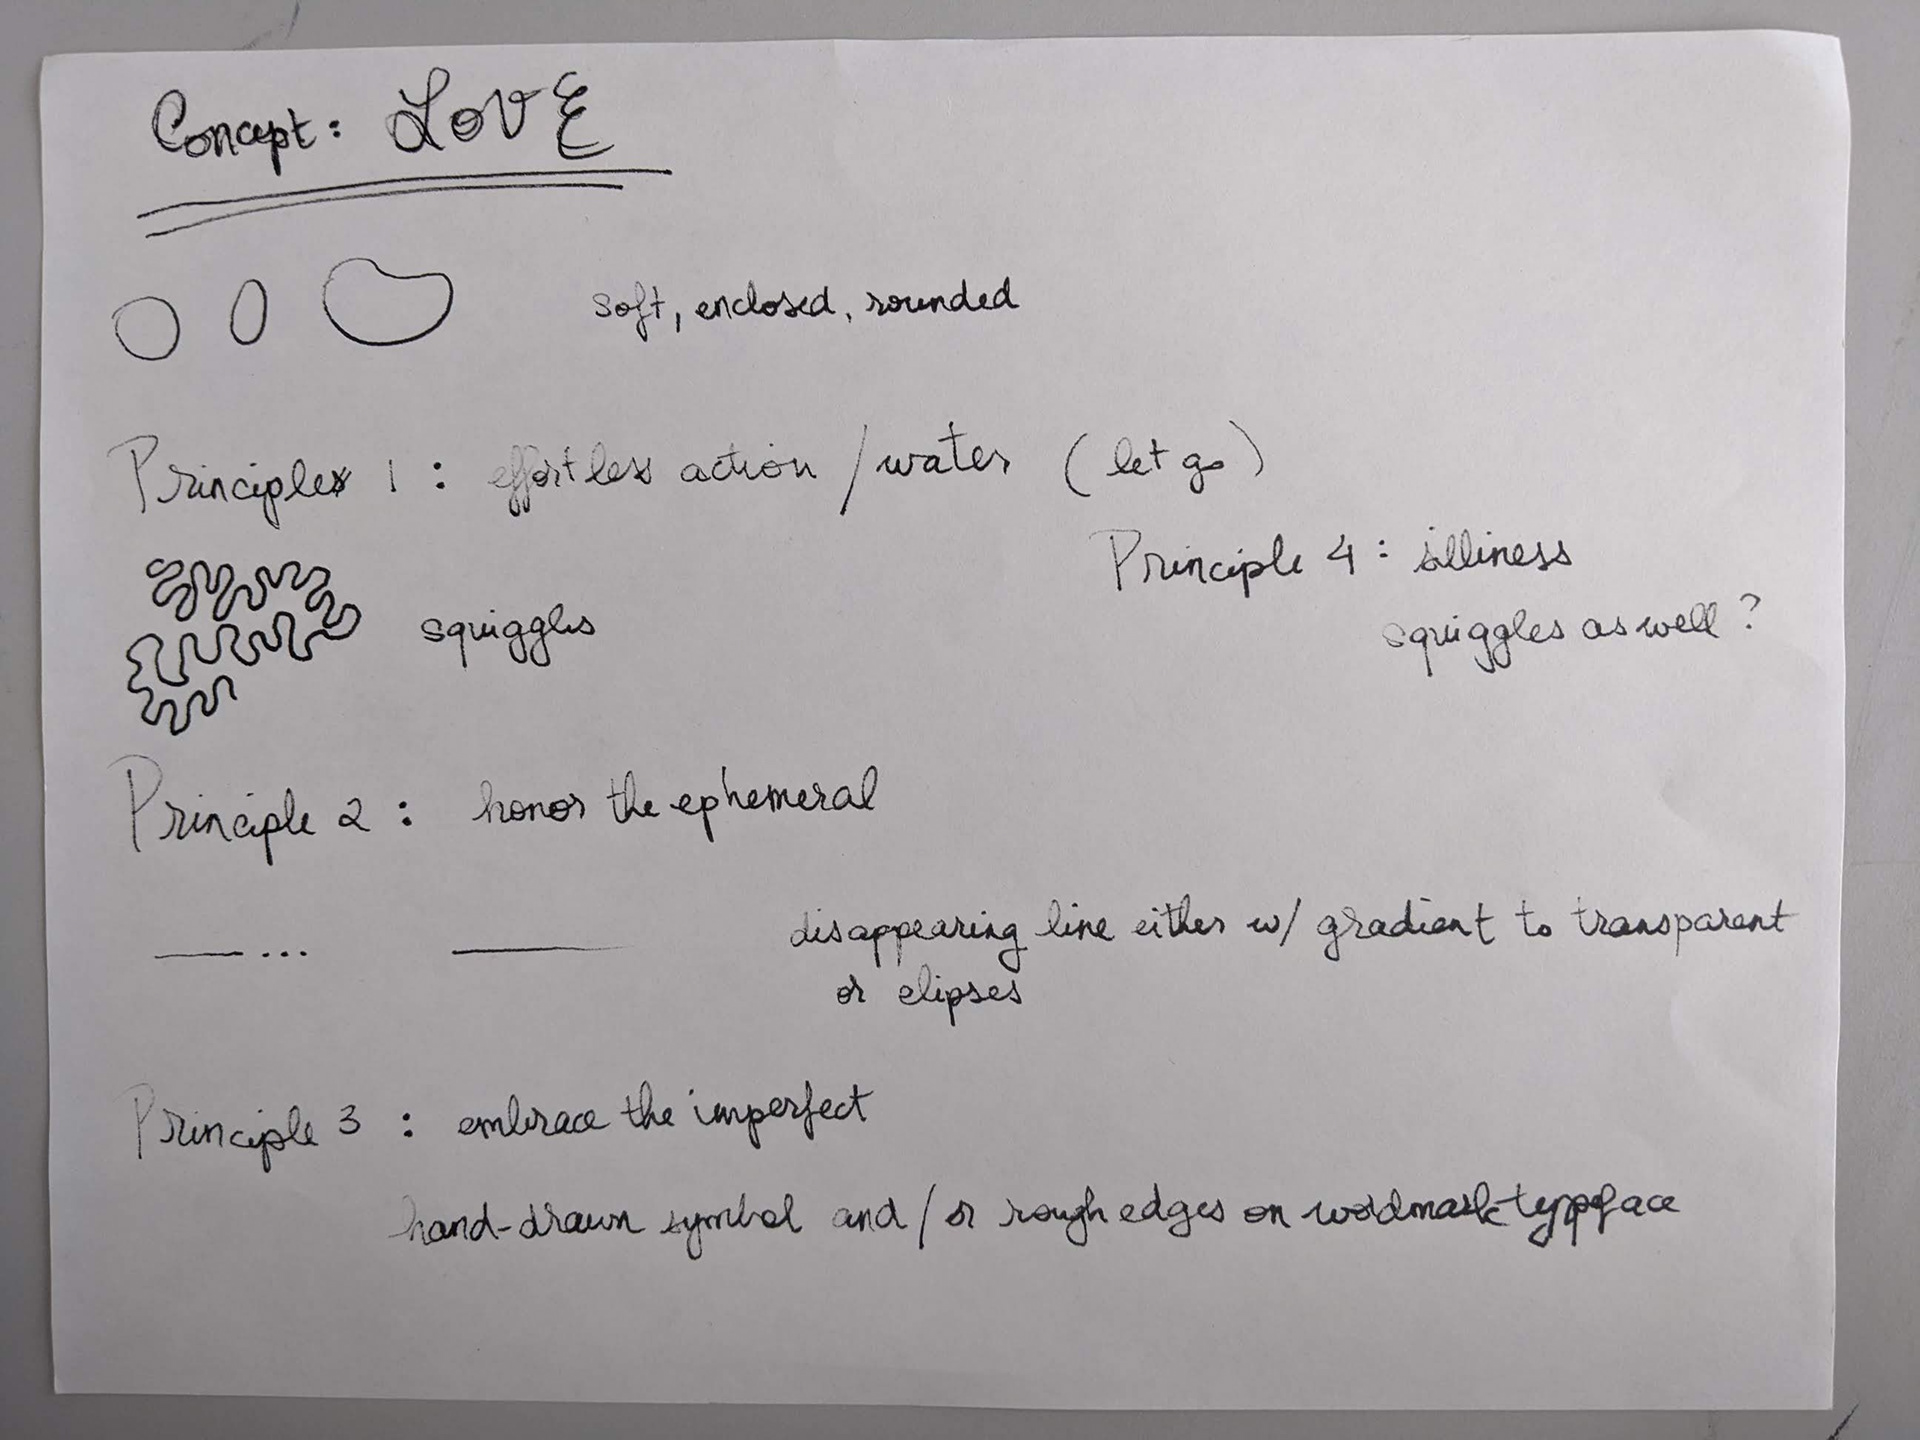 Concept: LOVE
soft, enclosed, rounded
Principles 1 : effortless action / water (let go)
Principle 4 : silliness
squiggles as well ?
squiggles
Principle 2 : honor the ephemeral
disappearing line either w/ gradient to transparent
or elipses
Principle 3 : embrace the imperfect
hand-drawn symbol and / or rough edges on wordmark-typeface